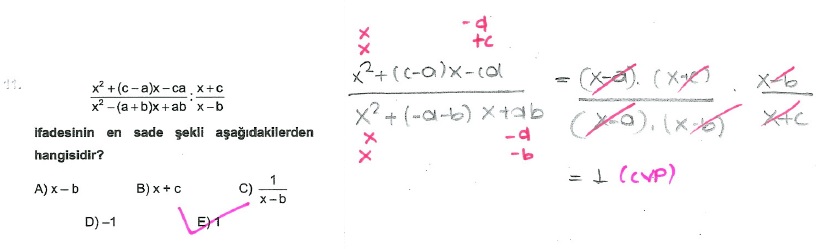 11.
x² + (c – a)x – ca / x² – (a + b)x + ab : x + c / x – b
ifadesinin en sade şekli aşağıdakilerden
hangisidir?
A) x – b B) x + c C) 1 / x – b
D) –1 E) 1
x -a
x +c
x² + (c-a)x - ca / x² + (-a-b)x + ab = (x-a) . (x+c) / (x-a) . (x-b) . x-b / x+c
x -a
x -b
= 1 (cvp)